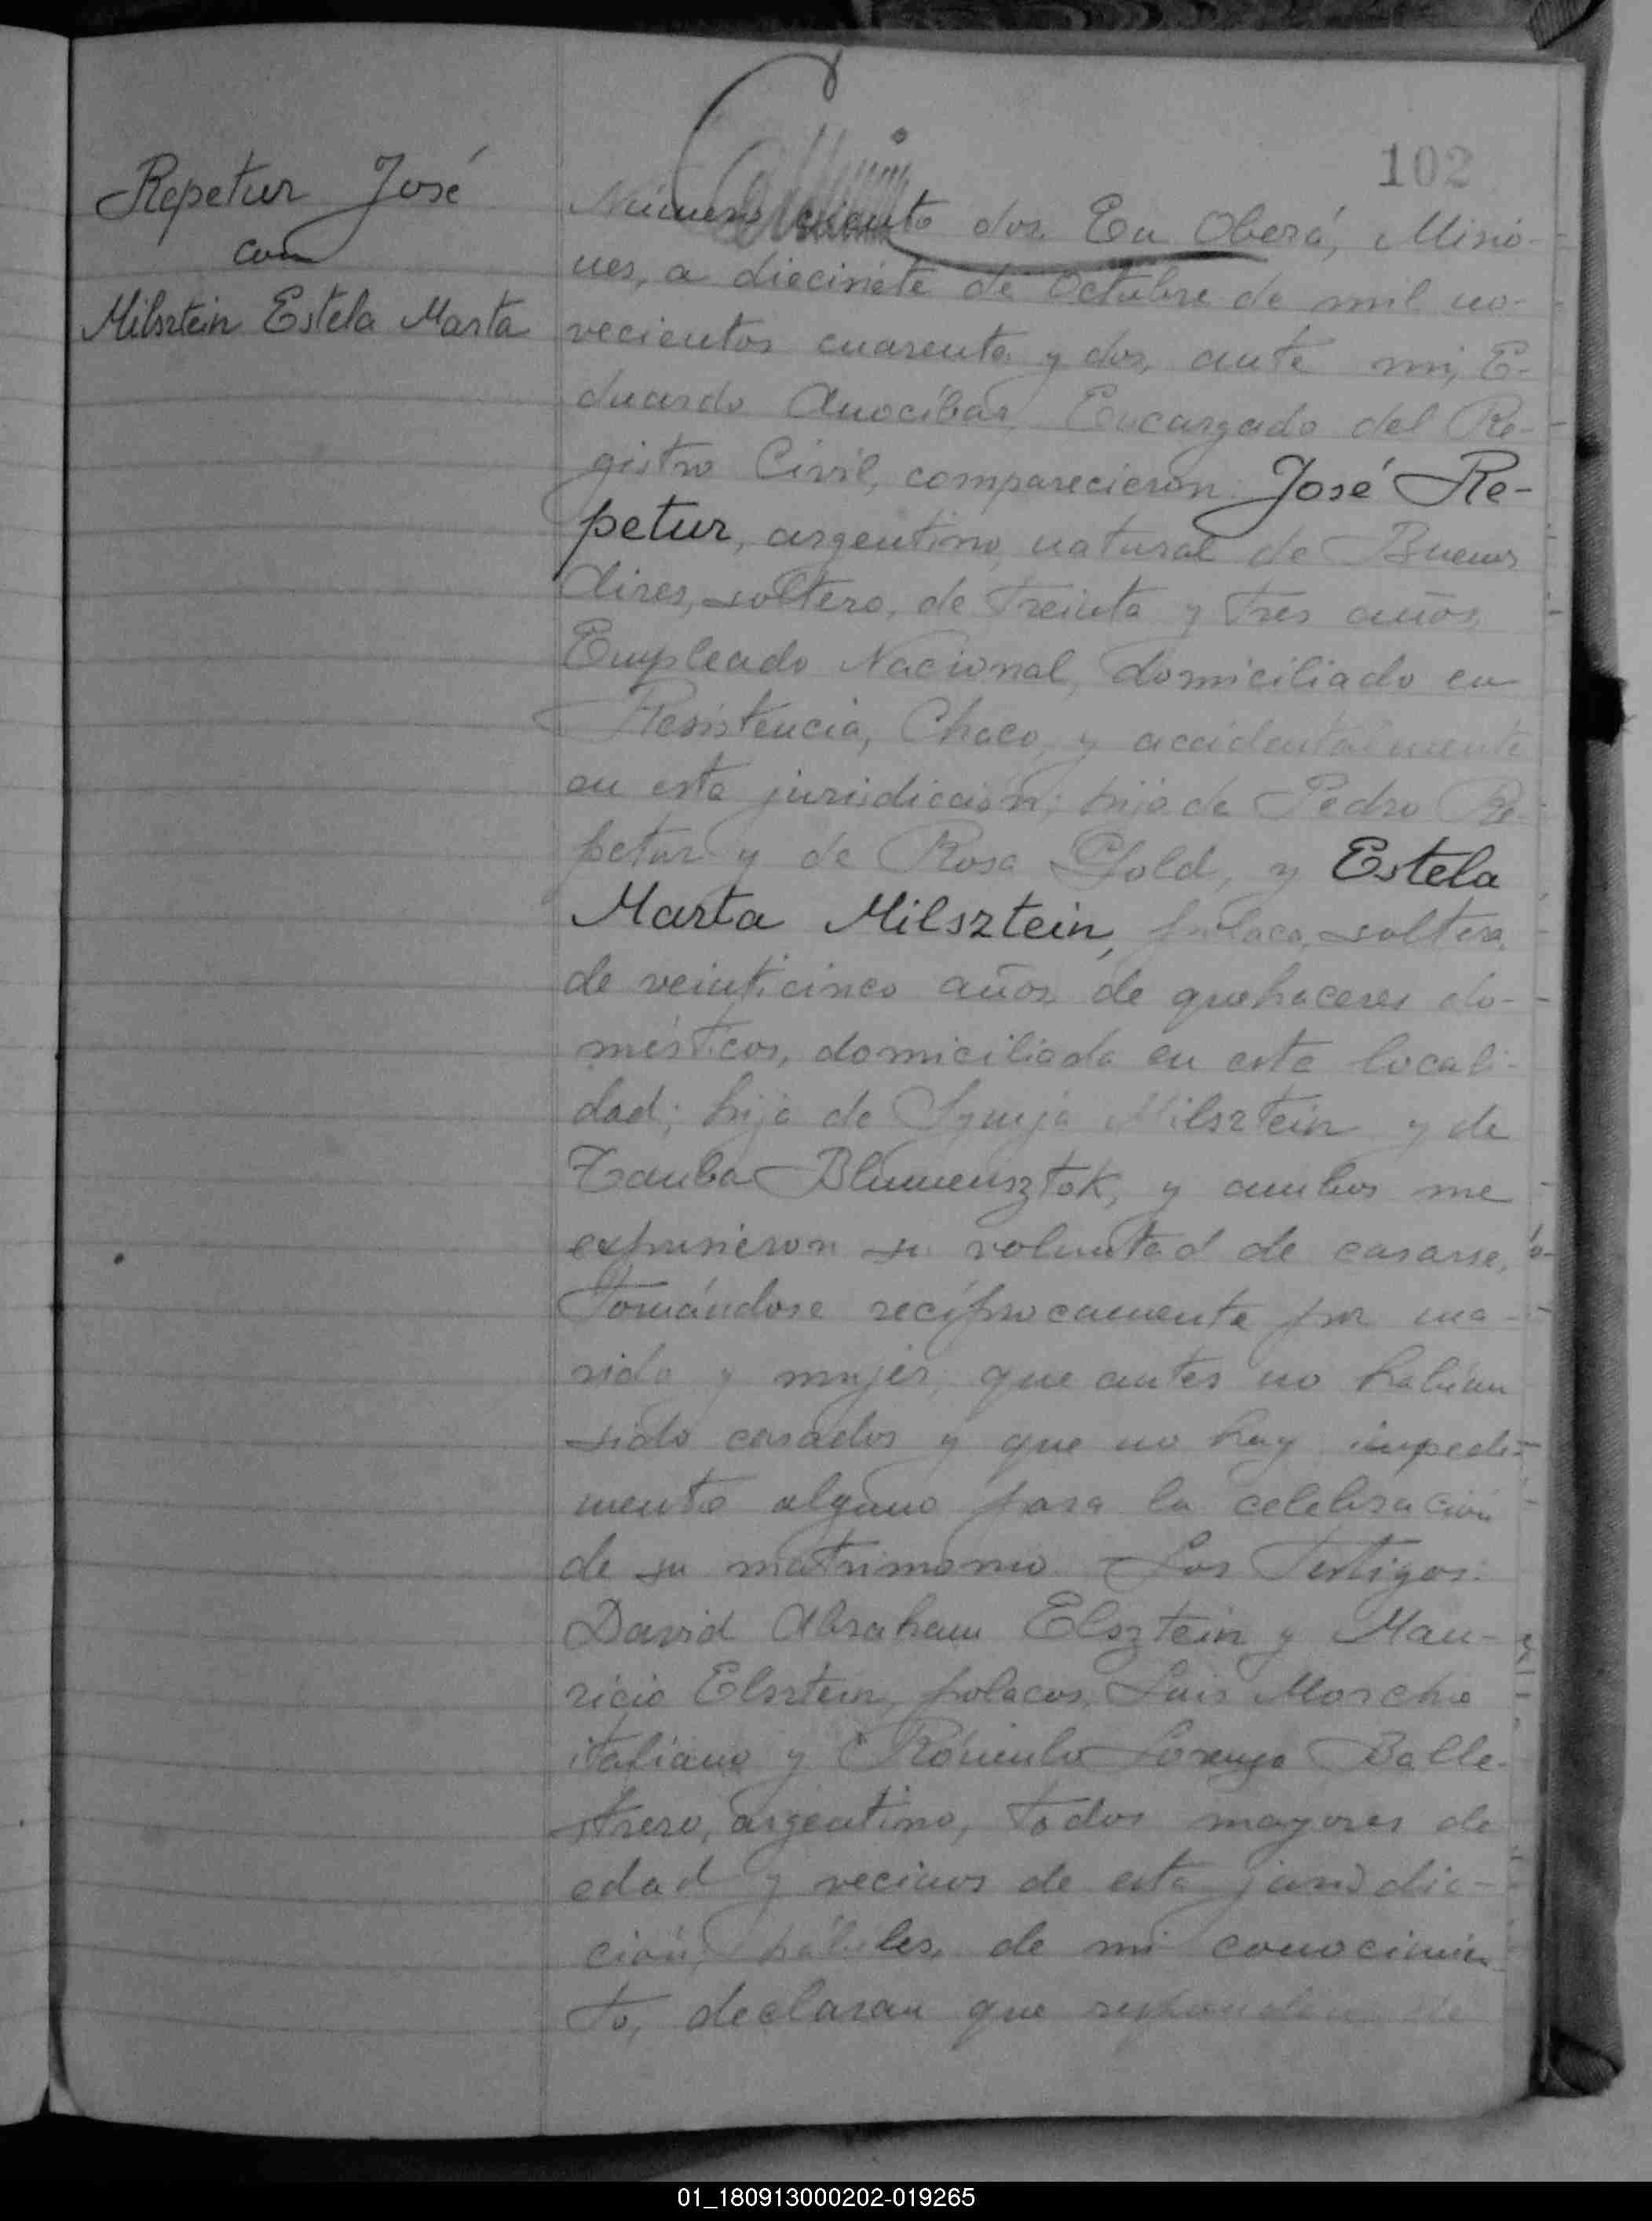 102
Repetur José
con
Milsztein Estela Marta
Número ciento dos. En Oberá, Misio-
nes, a diecisiete de Octubre de mil no-
vecientos cuarenta y dos, ante mi, E-
duardo Anocíbar, Encargado del Re-
gistro Civil, comparecieron: José Re-
petur, argentino, natural de Buenos
Aires, soltero, de treinta y tres años,
Empleado Nacional, domiciliado en
Resistencia, Chaco, y accidentalmente
en esta jurisdicción; hijo de Pedro Re-
petur y de Rosa Gold, y Estela
Marta Milsztein, polaca, soltera,
de veinticinco años, de quehaceres do-
mésticos, domiciliada en esta locali-
dad; hija de Milsztein y de
Tauba Blumensztok, y ambos me
expusieron su voluntad de casarse,
tomándose recíprocamente por ma-
rido y mujer, que antes no habían
sido casados y que no hay impedi-
mento alguno para la celebración
de su matrimonio. Los Testigos:
David Abraham Elsztein y Mau-
ricio Elsztein, polacos, Luis
italiano y Rómulo Lorenzo Balle-
strero, argentino, todos mayores de
edad y vecinos de esta jurisdic-
ción, hábiles, de mi conocimien-
to, declaran que responden de
01_180913000202-019265